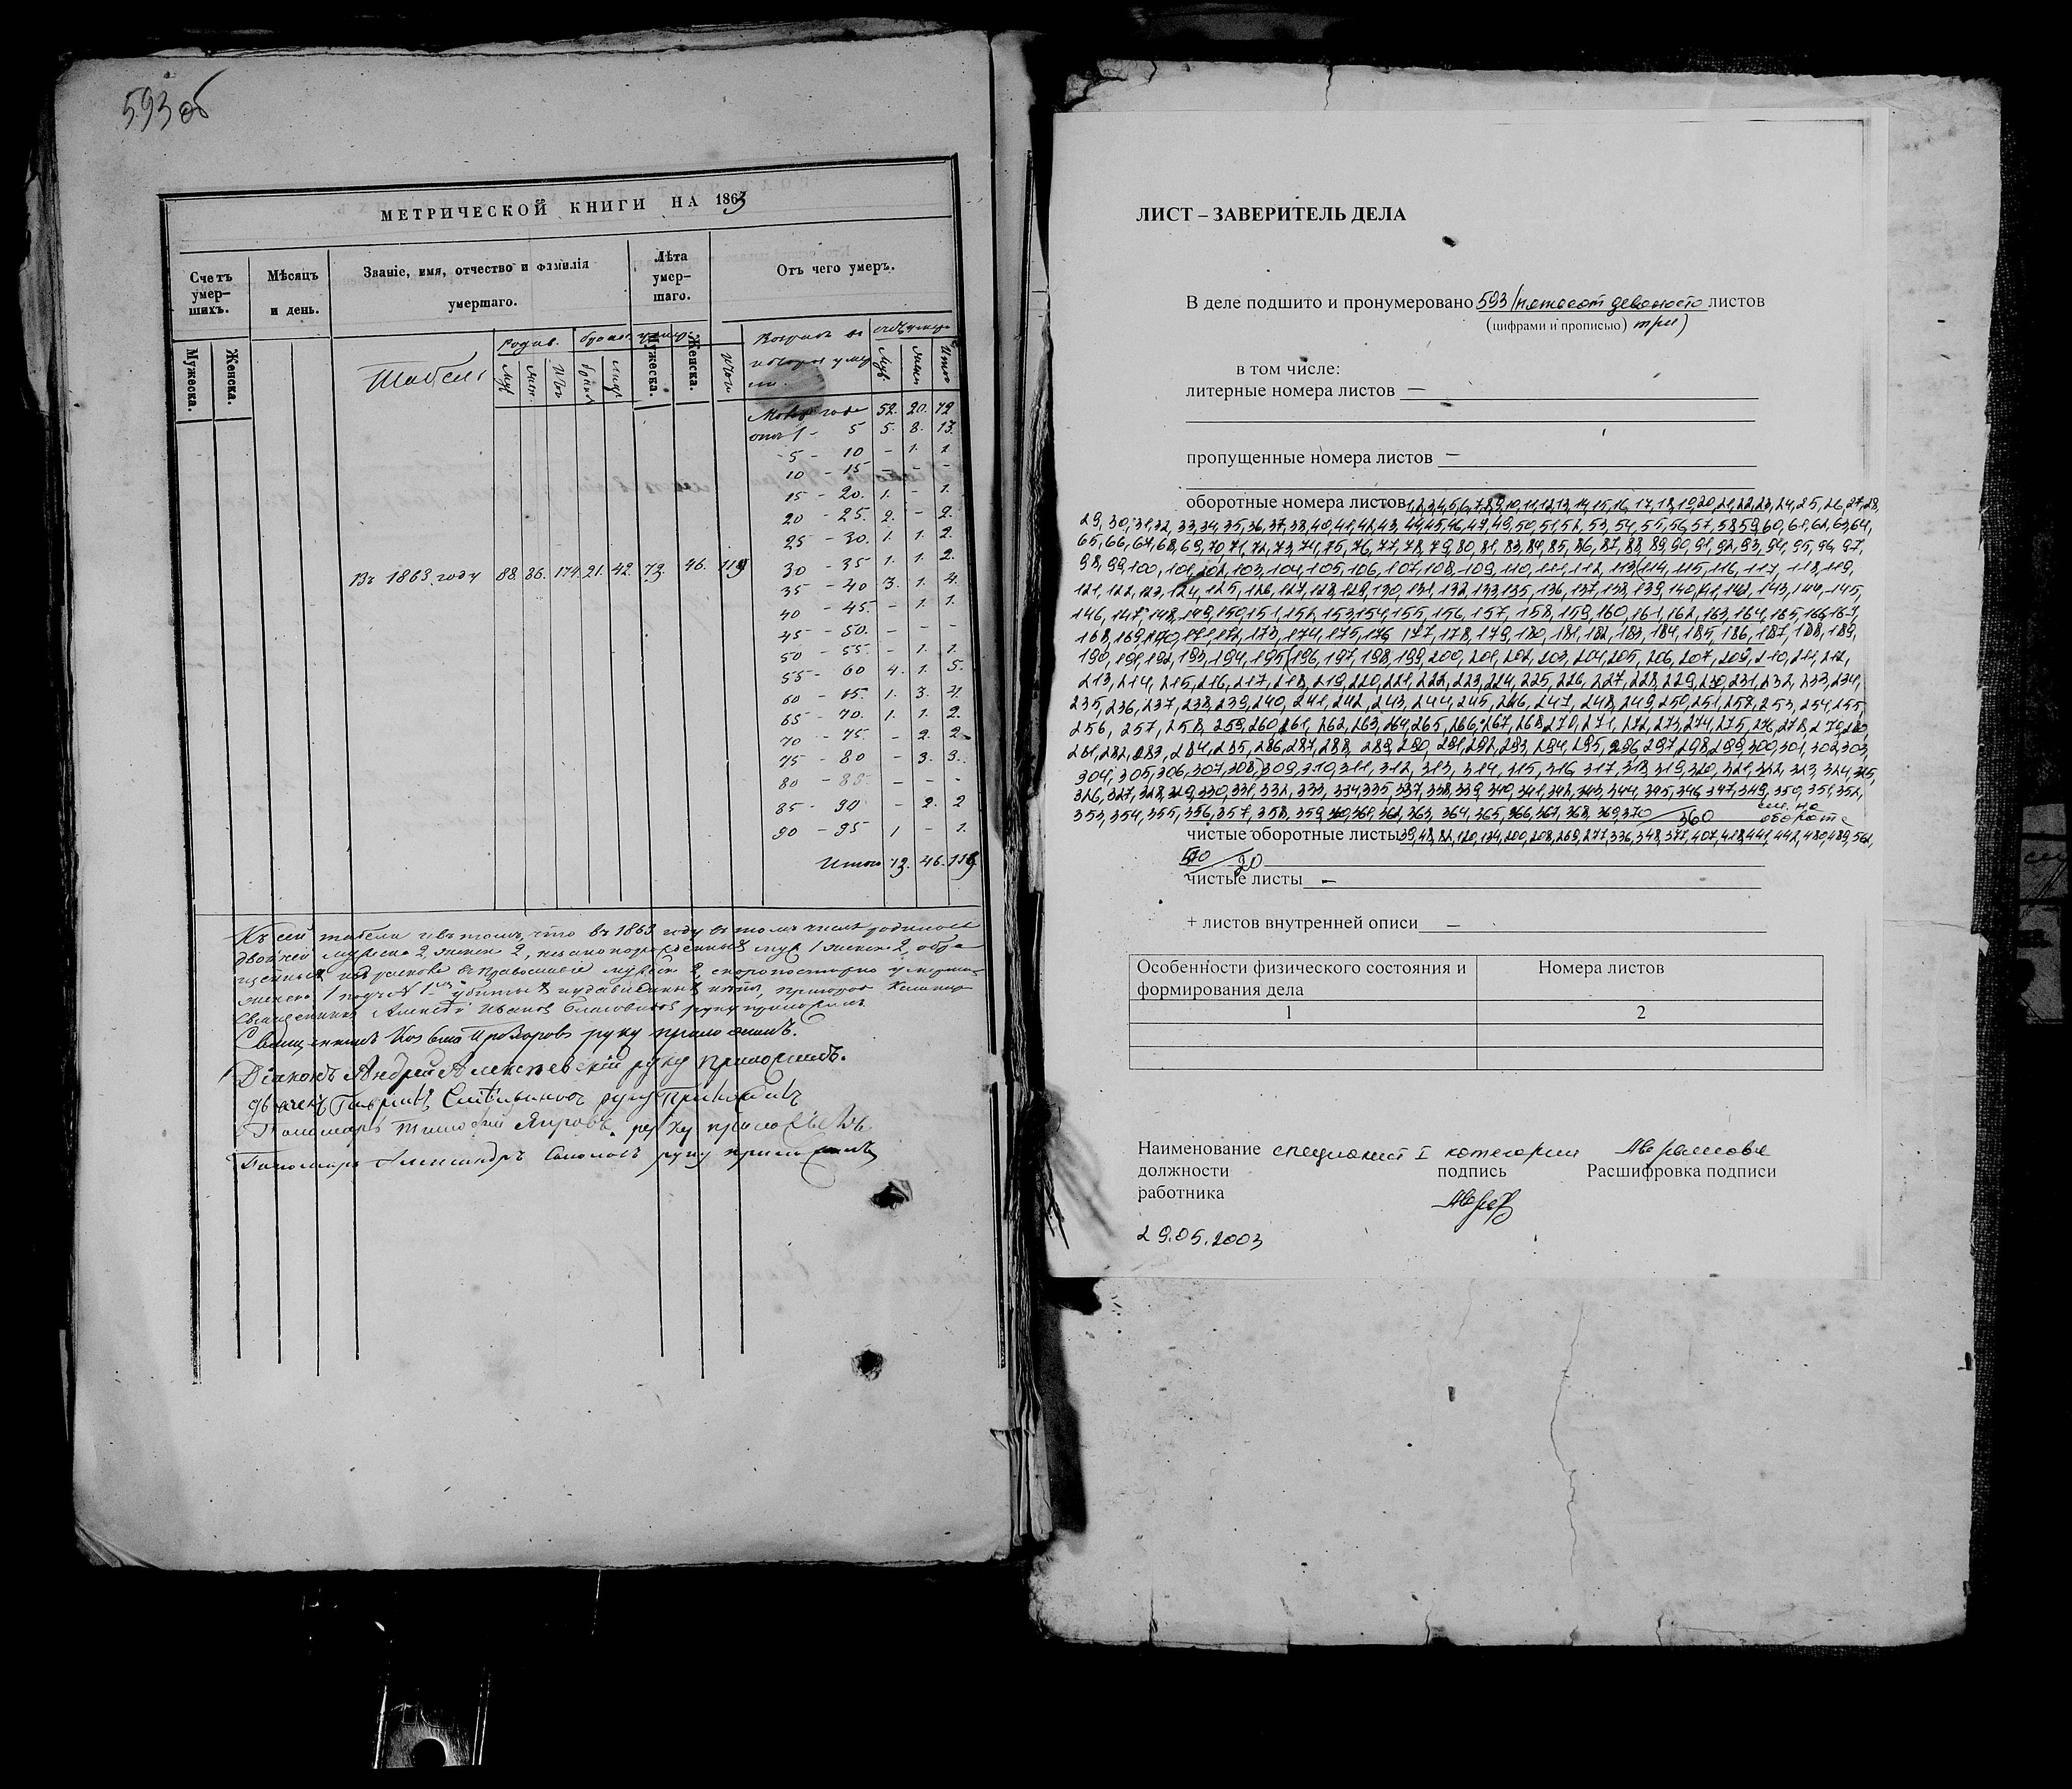 593 об
МЕТРИЧЕСКОЙ КНИГИ НА 1863
Счетъ умер-шихъ.
Мѣсяцъ и день.
Званіе, имя, отчество и фамилія умершаго.
Лѣта умер-шаго.
Отъ чего умеръ.
Мужеска.
Женска.
Табель
Мужеска.
Женска.
года 52. 20. 72
отъ 1 - 5 5. 8. 13.
5 - 10 - 1. 1
10 - 15 - - -
15 - 20. 1. - 1.
20 - 25. 2. - 2.
25 - 30. 1. 1. 2.
30 - 35 1. 1. 2.
Въ 1863. году 88. 86. 174. 21. 42. 73. 46. 119
35 - 40 3. 1. 4.
40 - 45. - 1. 1.
45 - 50. - - -
50 - 55. - 1. 1.
55 - 60 4. 1. 5.
60 - 65. 1. 3. 4.
65 - 70. 1. 1. 2.
70 - 75. - 2. 2
75 - 80 - 3. 3.
80 - 85 - - -
85 - 90 - 2. 2
90 - 95 1 - 1.
Итого 73. 46. 119.
Къ сей табели въ томъ, что въ 1863 году въ томъ числѣ родилось
двойней мужеска 2, женск 2, незаконнорожденныхъ муж 1 женск 2, обра-
щенныхъ изъ раскола въ православіе мужск 2, скоропостижно умерших
женска 1 подъ № 1
Священникъ Алексѣй Ивановъ руку приложилъ
Священникъ Козьма Прозоровъ руку приложилъ.
Діаконъ Андрей Алексѣевскій руку приложилъ.
дьячекъ Гаврiилъ руку приложилъ
Пономарь Тимофей руку приложилъ
Пономарь Александръ Соколовъ руку приложилъ
ЛИСТ – ЗАВЕРИТЕЛЬ ДЕЛА
В деле подшито и пронумеровано 593 /пятьсот девяносто листов
(цифрами и прописью) три)
в том числе:
литерные номера листов —
пропущенные номера листов —
оборотные номера листов 1,2,3,4,5,6,7,8,9,10,11,12,13,14,15,16,17,18,19,20,21,22,23,24,25,26,27,28,
29,30,31,32,33,34,35,36,37,38,40,41,42,43,44,45,46,47,49,50,51,52,53,54,55,56,57,58,59,60,61,62,63,64,
65,66,67,68,69,70,71,72,73,74,75,76,77,78,79,80,81,83,84,85,86,87,88,89,90,91,92,93,94,95,96,97,
98,99,100,101,102,103,104,105,106,107,108,109,110,111,112,113,114,115,116,117,118,119,
121,122,123,124,125,126,127,128,129,130,131,132,133,135,136,137,138,139,140,141,142,143,144,145,
146,147,148,149,150,151,152,153,154,155,156,157,158,159,160,161,162,163,164,165,166,167,
168,169,170,171,172,173,174,175,176,177,178,179,180,181,182,183,184,185,186,187,188,189,
190,191,192,193,194,195,196,197,198,199,200,201,202,203,204,205,206,207,209,210,211,212,
213,214,215,216,217,218,219,220,221,222,223,224,225,226,227,228,229,230,231,232,233,234,
235,236,237,238,239,240,241,242,243,244,245,246,247,248,249,250,251,252,253,254,255,
256,257,258,259,260,261,262,263,264,265,266,267,268,270,271,272,273,274,275,276,278,279,280,
281,282,283,284,285,286,287,288,289,290,291,292,293,294,295,296,297,298,299,300,301,302,303,
304,305,306,307,308,309,310,311,312,313,314,315,316,317,318,319,320,321,322,323,324,325,
326,327,328,329,330,331,332,333,334,335,337,338,339,340,341,342,343,344,345,346,347,349,350,351,352,
353,354,355,356,357,358,359,360,361,362,363,364,365,366,367,368,369,370 / 360 см. на обороте
чистые оборотные листы 39,48,82,120,134,200,208,269,277,336,348,377,407,418,441,442,480,489,561,
570 / 20
чистые листы —
+ листов внутренней описи —
Особенности физического состояния и формирования дела
Номера листов
1
2
Наименование специалист I категории Аврамова
должности подпись Расшифровка подписи
работника
29.05.2003